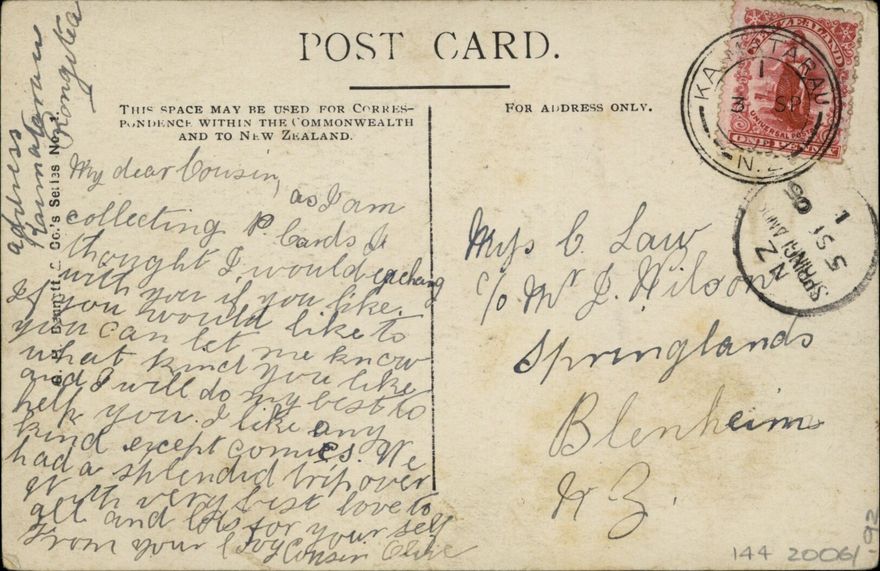 POST CARD.
THIS SPACE MAY BE USED FOR CORRES-
PONDENCE WITHIN THE COMMONWEALTH
AND TO NEW ZEALAND.
FOR ADDRESS ONLY.
address
Kaimatarau
Rongotea
Co.'s Series No. 1.
My dear Cousin,
as I am
collecting P. Cards I
thought I would exchang
with you if you like.
If you would like to
you can let me know
what kind you like
and I will do my best to
help you. I like any
kind except comics. We
had a splendid trip over
With very best love to
all and lots for your self
From your Cousin Olive
Miss C. Law
c/o Mr J. Wilson
Springlands
Blenheim
N Z.
NEW ZEALAND
UNIVERSAL POSTAGE
ONE PENNY
KAIMATARAU
1
3 SP
N.Z
SPRINGLANDS
N Z
5 SP
05
1
144 2006/-92